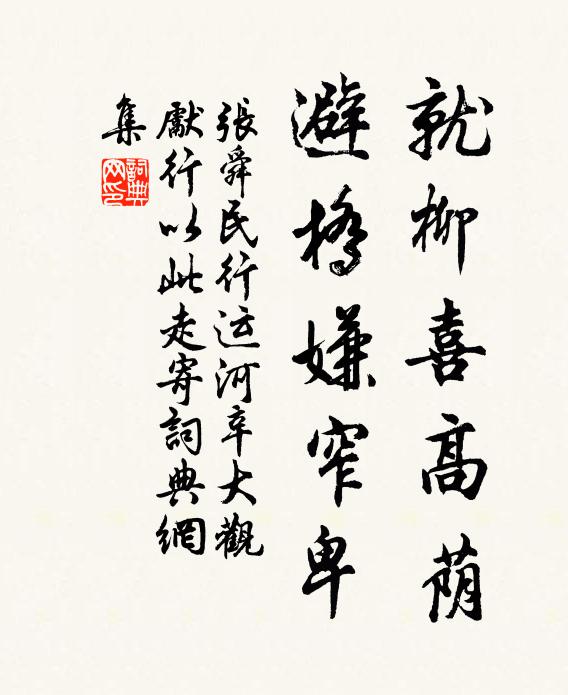 就柳喜高荫
避桥嫌窄卑
張舜民行运河辛大觀
獻行以此走寄詞典網
集
詞典網印